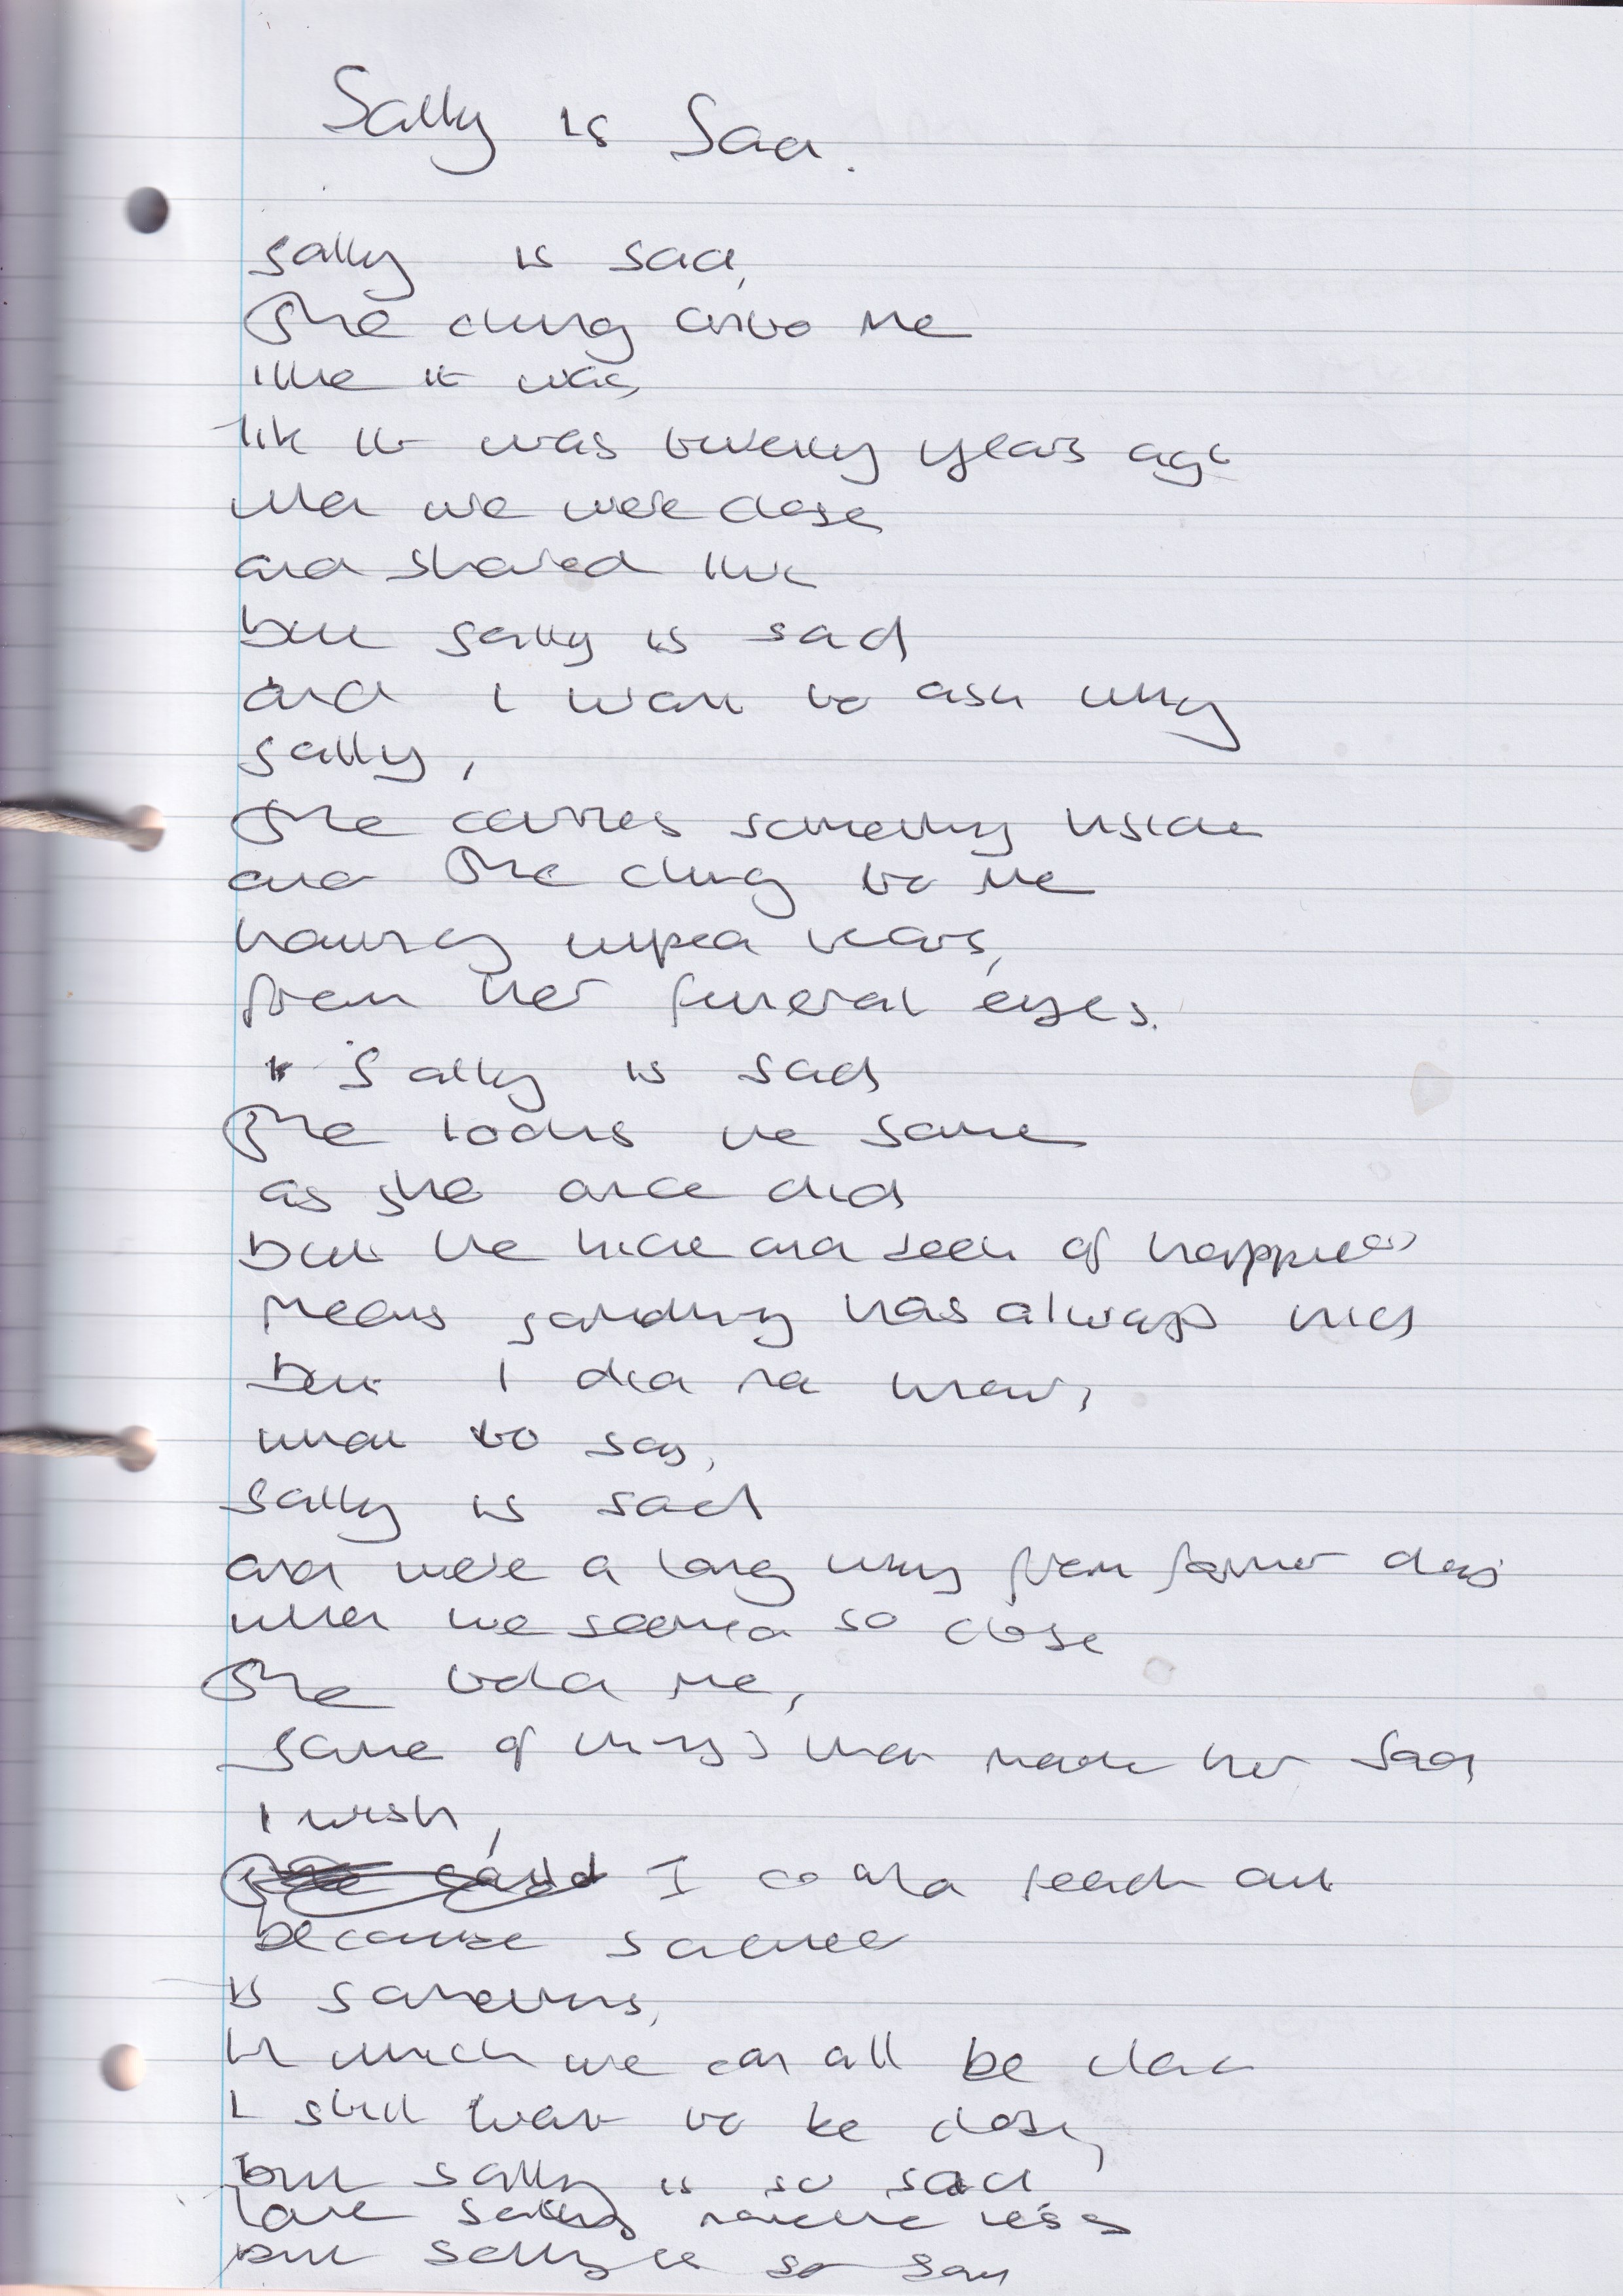 Sally is Sad.
Sally is sad,
She clung onto me
like it was,
lik it was twenty years ago
when we were close
and shared
but Sally is sad
and I want to ask why
Sally,
She carries something inside
and She clung to me
having wiped tears,
from her funeral eyes.
Sally is sad
She looks the same
as she once did
but the hide and seek of happiness
means something has always hid
but I did not know,
what to say,
Sally is sad
and we're a long way from former days
when we seemed so close
She told me,
some of things that made her sad
I wish,
I could reach out
because
is something,
in which we can all be
I still want to be close,
but Sally is so sad
love Sally none the less
but Sally is so sad